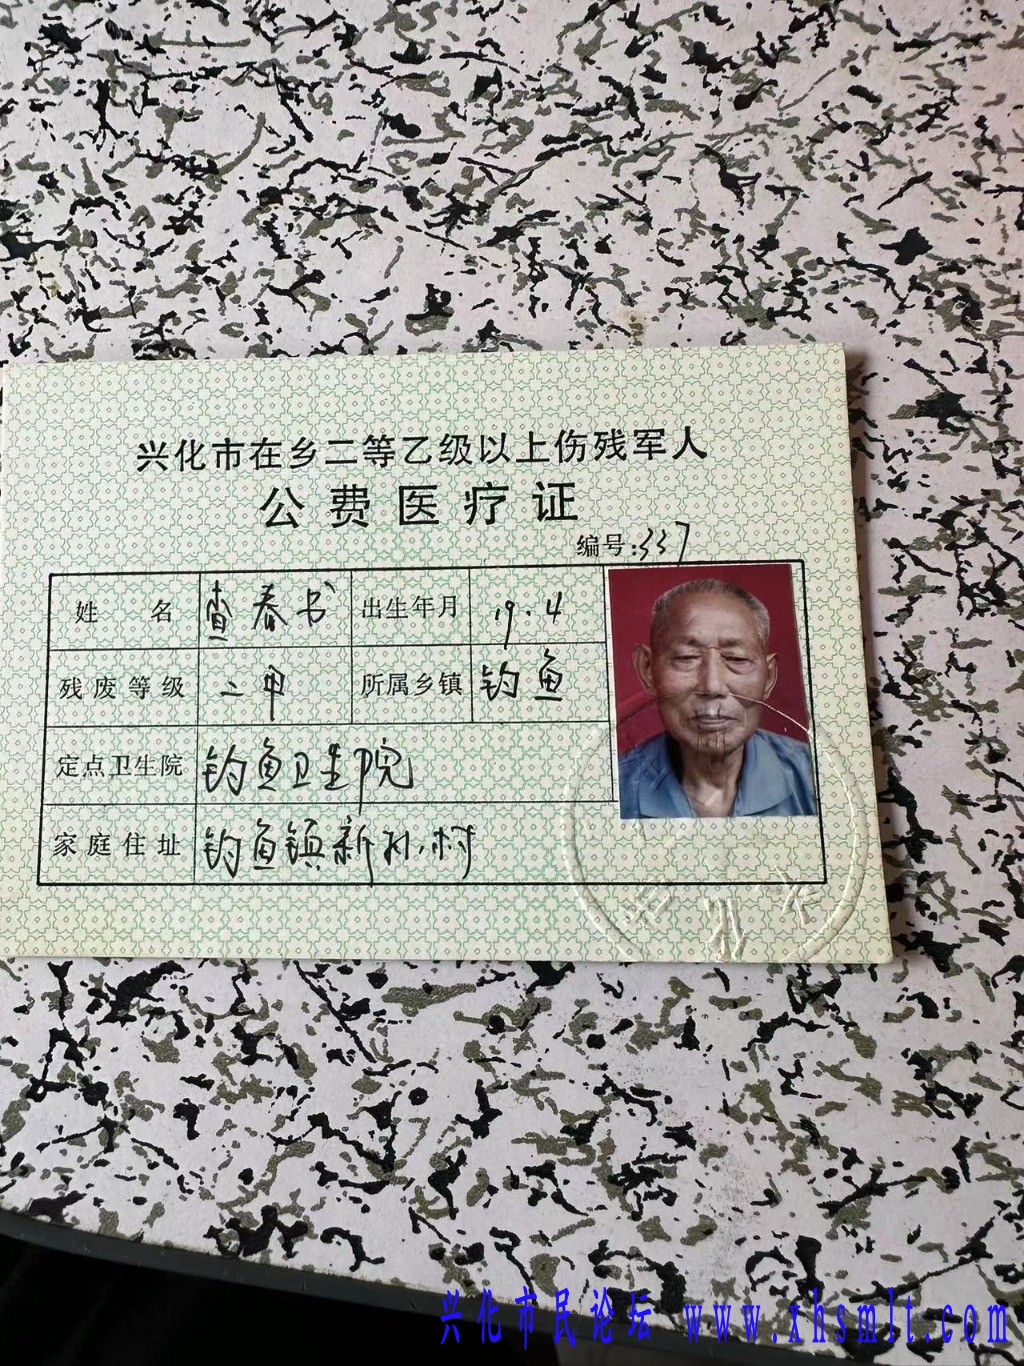 兴化市在乡二等乙级以上伤残军人
公费医疗证
编号:337
姓名 查春书 出生年月 19.4
残废等级 二甲 所属乡镇 钓鱼
定点卫生院 钓鱼卫生院
家庭住址 钓鱼镇新孙村
兴化市民论坛 www.xhsmlt.com